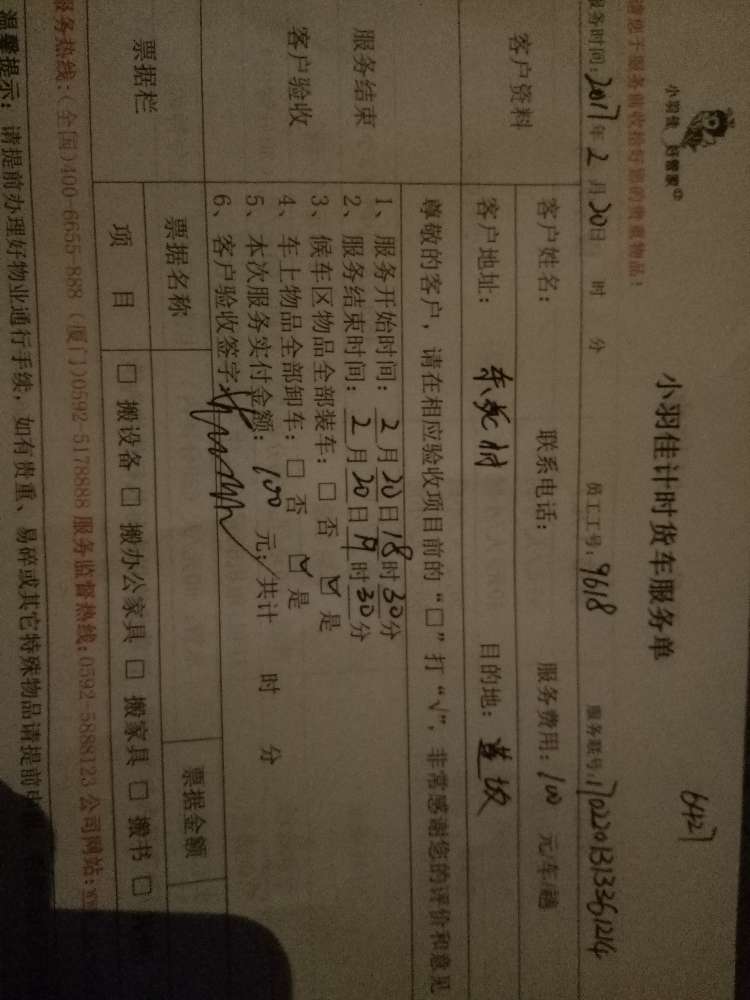 小羽佳 好管家
小羽佳计时货车服务单
6427
请您于服务前收拾好您的贵重物品!
服务时间: 2017年 2 月 20日 时 分 员工工号: 9618 服务联号: 1702201313361214
客户资料
客户姓名: 联系电话: 服务费用: 100 元/车/趟
客户地址: 目的地:
服务结束
客户验收
尊敬的客户,请在相应验收项目前的“□”打“√”,非常感谢您的评价和意见
1、服务开始时间: 2月20日18时30分
2、服务结束时间: 2月20日19时30分
3、候车区物品全部装车: □ 否 ☑ 是
4、车上物品全部卸车: □ 否 ☑ 是
5、本次服务实付金额: 100 元; 共计 时 分
6、客户验收签字:
票据栏
票据名称 票据金额
项 目 □ 搬设备 □ 搬办公家具 □ 搬家具 □ 搬书 □
服务热线:(全国)400-6655-888 (厦门)0592-5178888 服务监督热线:0592-5888123 公司网站:
温馨提示: 请提前办理好物业通行手续,如有贵重、易碎或其它特殊物品请提前